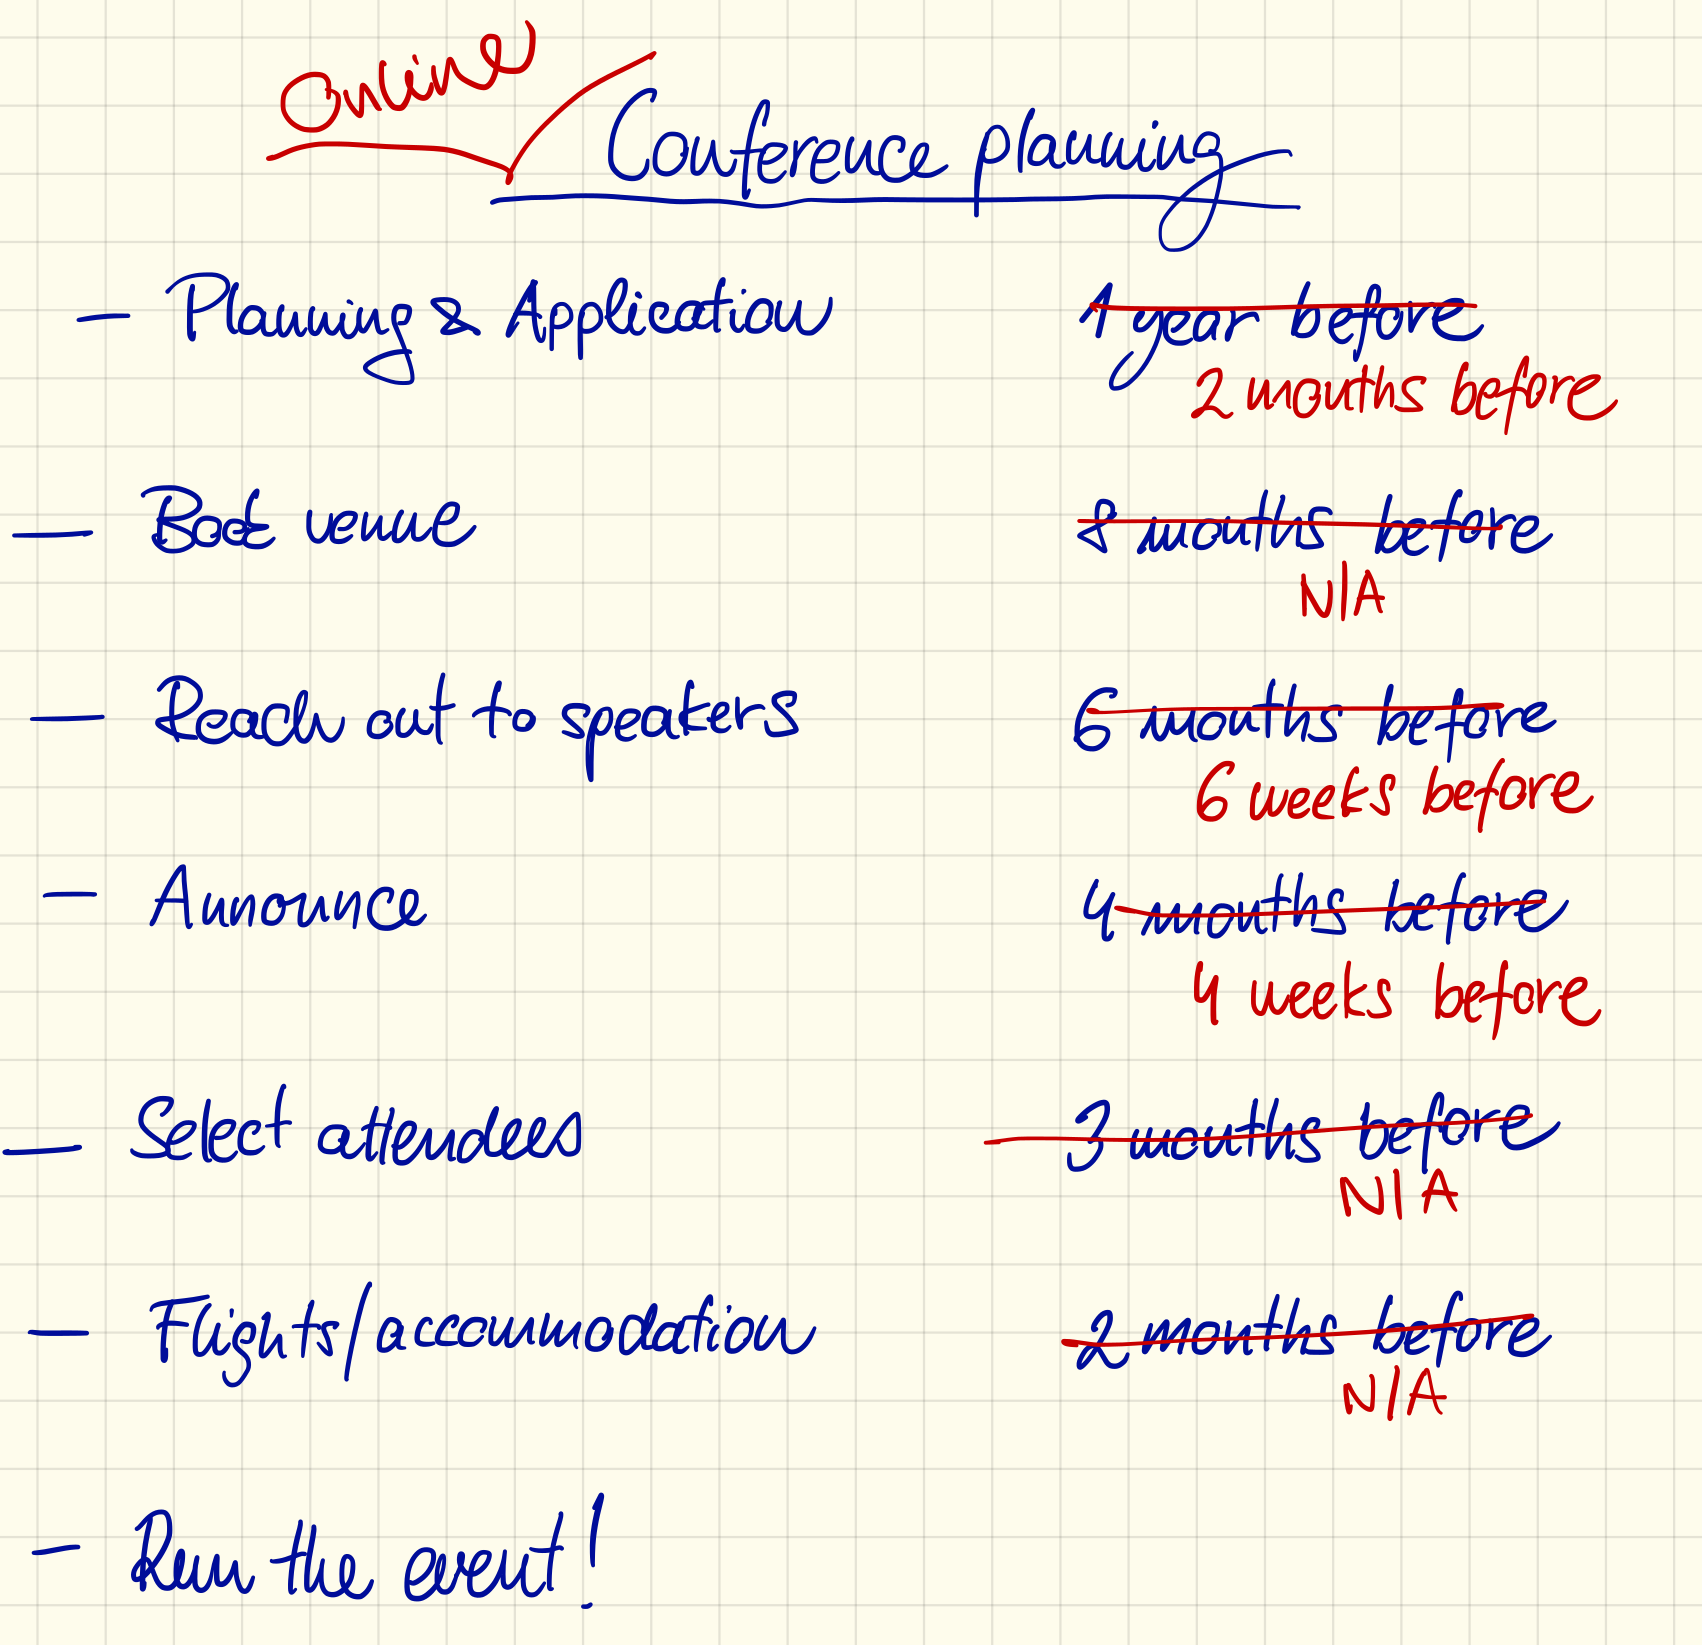 Online
Conference planning
- Planning & Application 1 year before
2 months before
- Book venue 8 months before
N/A
- Reach out to speakers 6 months before
6 weeks before
- Announce 4 months before
4 weeks before
- Select attendees 3 months before
N/A
- Flights/accommodation 2 months before
N/A
- Run the event!